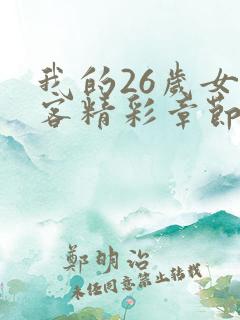 我的26歲女
客精彩章節
鄭明治
未经同意禁止转载